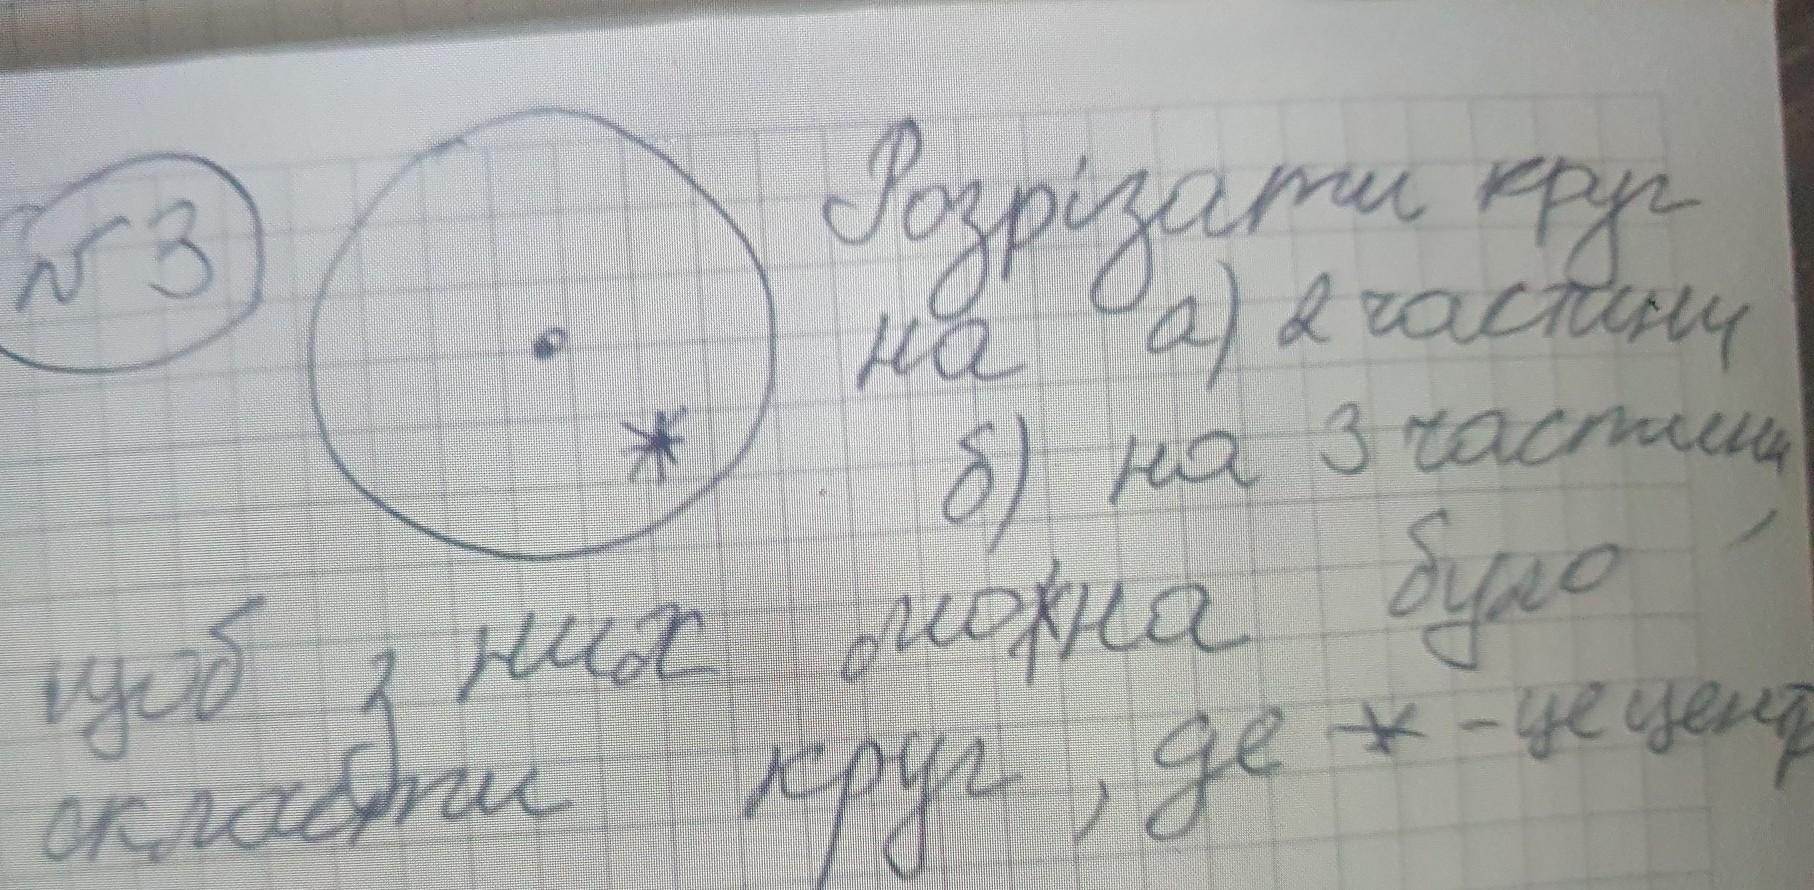 №3
Розрізати круг
на а) 2 частини
б) на 3 частини,
щоб з них можна було
скласти круг, де * - це центр